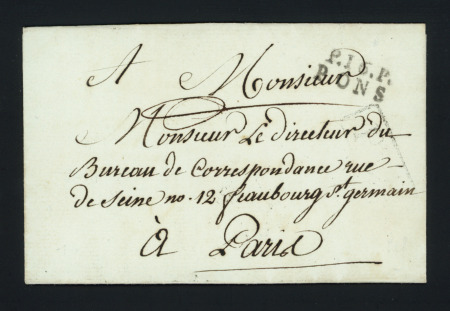 A Monsieur
P.16.P.
PONS
Monsieur Le directeur du
Bureau de Correspondance rue
de Seine no. 12 fraubourg St. germain
à Paris